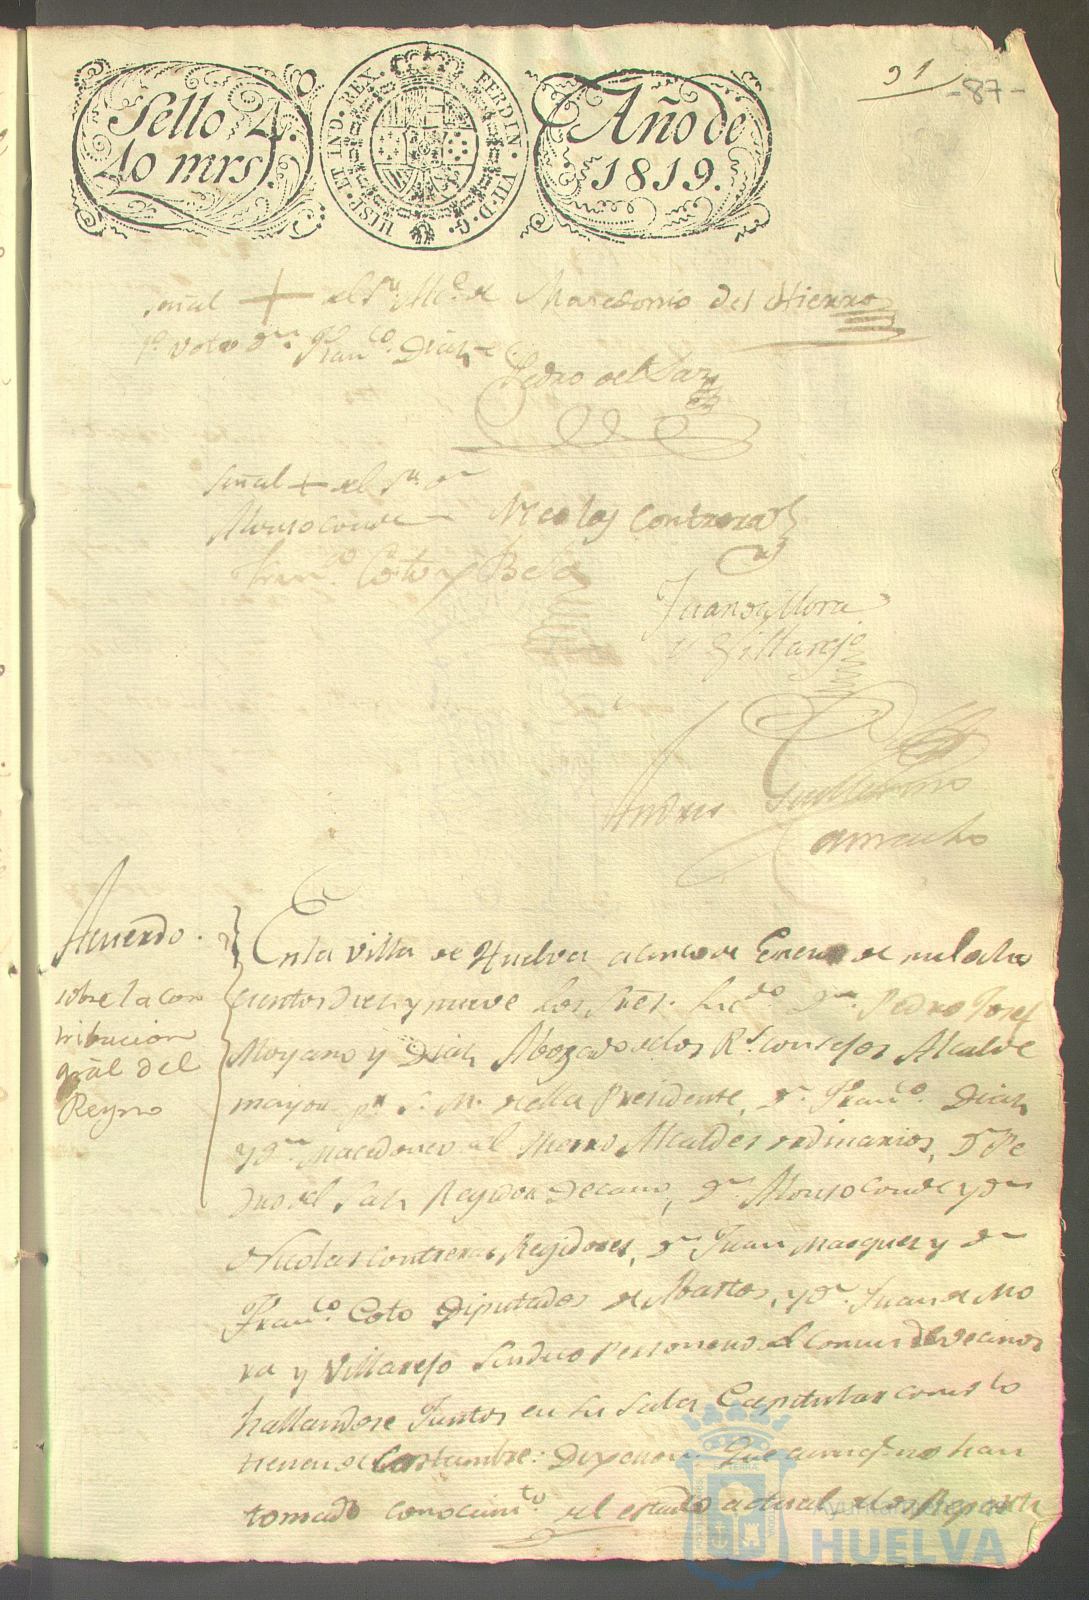 Sello 4.
40 mrs.
HISP. ET IND. REX. FERDIN. VII. D. G.
Año de
1819.
91
-87-
señal + del Sr. de Macedonio del Hierro
1º voto Dn. Franco. Diaz
Pedro del Saz
señal + del Sr. Dn
Alonso Conde Nicolas Contreras
Franco. Coto y Besa
Juan de Mora
y Villarejo
Andres Guillermo
Camacho
Acuerdo.
sobre la con
tribucion
gral del
Reyno
En la villa de Huelva a cinco de Enero de mil ocho
cientos diez y nueve los Sres. Licdo. Dn. Pedro Josef
Moyano y Diaz Abogado de los Rs. Consejos Alcalde
mayor pr. S. M. de ella Presidente, Dn. Franco. Diaz
y Dn. Macedonio del Hierro Alcaldes ordinarios, Dn Pe
dro del Saz Regidor Decano, Dn. Alonso Conde y Dn
Nicolas Contreras Regidores, Dn Juan Marquez y Dn
Franco. Coto Diputados de Abastos, y Dn. Juan de Mo
ra y Villarejo Sindico Personero del Comun de vecinos
hallandose Juntos en su Sala Capitular como lo
tienen de Costumbre: Dixeron: Que aunqe. no han
tomado conocimto. del estado actual de los Reparti
Ayuntamiento de
HUELVA